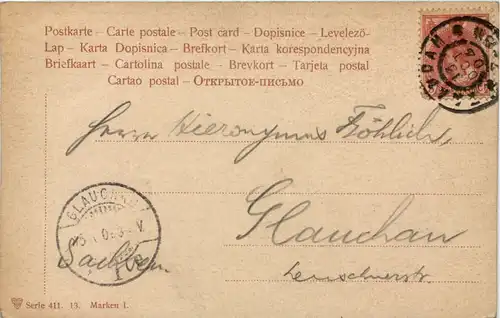 Postkarte – Carte postale – Post card – Dopisnice – Levelező-
Lap – Karta Dopisnica – Brefkort – Karta korespondencyjna
Briefkaart – Cartolina postale – Brevkort – Tarjeta postal
Cartao postal – ОТКРЫТОЕ-ПИСЬМО
Herrn Hieronymus Fröhlich,
GLAUCHAU
Glauchau
Sachsen.
Serie 411. 15. Marken 1.